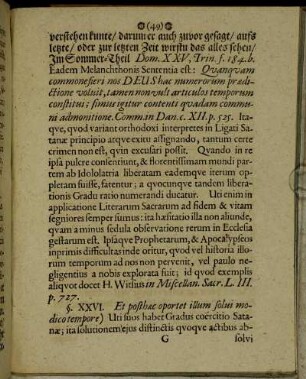 (49)
verstehen kunte/ darum er auch zuvor gesagt/ aufs
letzte/ oder zur letzten Zeit wirstu das alles sehen/
Im Sommer-Theil Dom. XXV. Trin. f. 184. b.
Eadem Melanchthonis Sententia est: Qvanqvam
commonefieri nos DEUS hac numerorum prædi-
ctione voluit, tamen non vult articulos temporum
constitui; simus igitur contenti qvadam commu-
ni admonitione. Comm. in Dan. c. XII. p. 525. Ita-
qve, qvod variant orthodoxi interpretes in Ligati Sa-
tanæ principio atqve exitu assignando, tantum certe
crimen non est, qvin excusari possit. Qvando in re
ipsa pulcre consentiunt, & florentissimam mundi par-
tem ab Idololatria liberatam eademque iterum op-
pletam fuisse, fatentur; a qvocunqve tandem libera-
tionis Gradu ratio numerandi ducatur. Uti enim in
applicatione Literarum Sacrarum ad fidem & vitam
segniores semper sumus; ita hæsitatio illa non aliunde,
qvam a minus sedula observatione rerum in Ecclesia
gestarum est. Ipsaqve Prophetarum, & Apocalypseos
inprimis difficultas inde oritur, qvod vel historia illo-
rum temporum ad nos non pervenit, vel paulo ne-
gligentius a nobis explorata fuit; id qvod exemplis
aliqvot docet H. Witsius in Miscellan. Sacr. L. III.
p. 727.
§. XXVI. Et posthac oportet illum solui mo-
dico tempore) Uti suos habet Gradus coërcitio Sata-
næ; ita solutionem ejus distinctis qvoqve actibus ab-
G
solvi